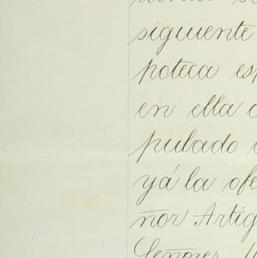 siguiente
poteca es
en ella
pulado
yá la ofe
ñor Artig
Señores